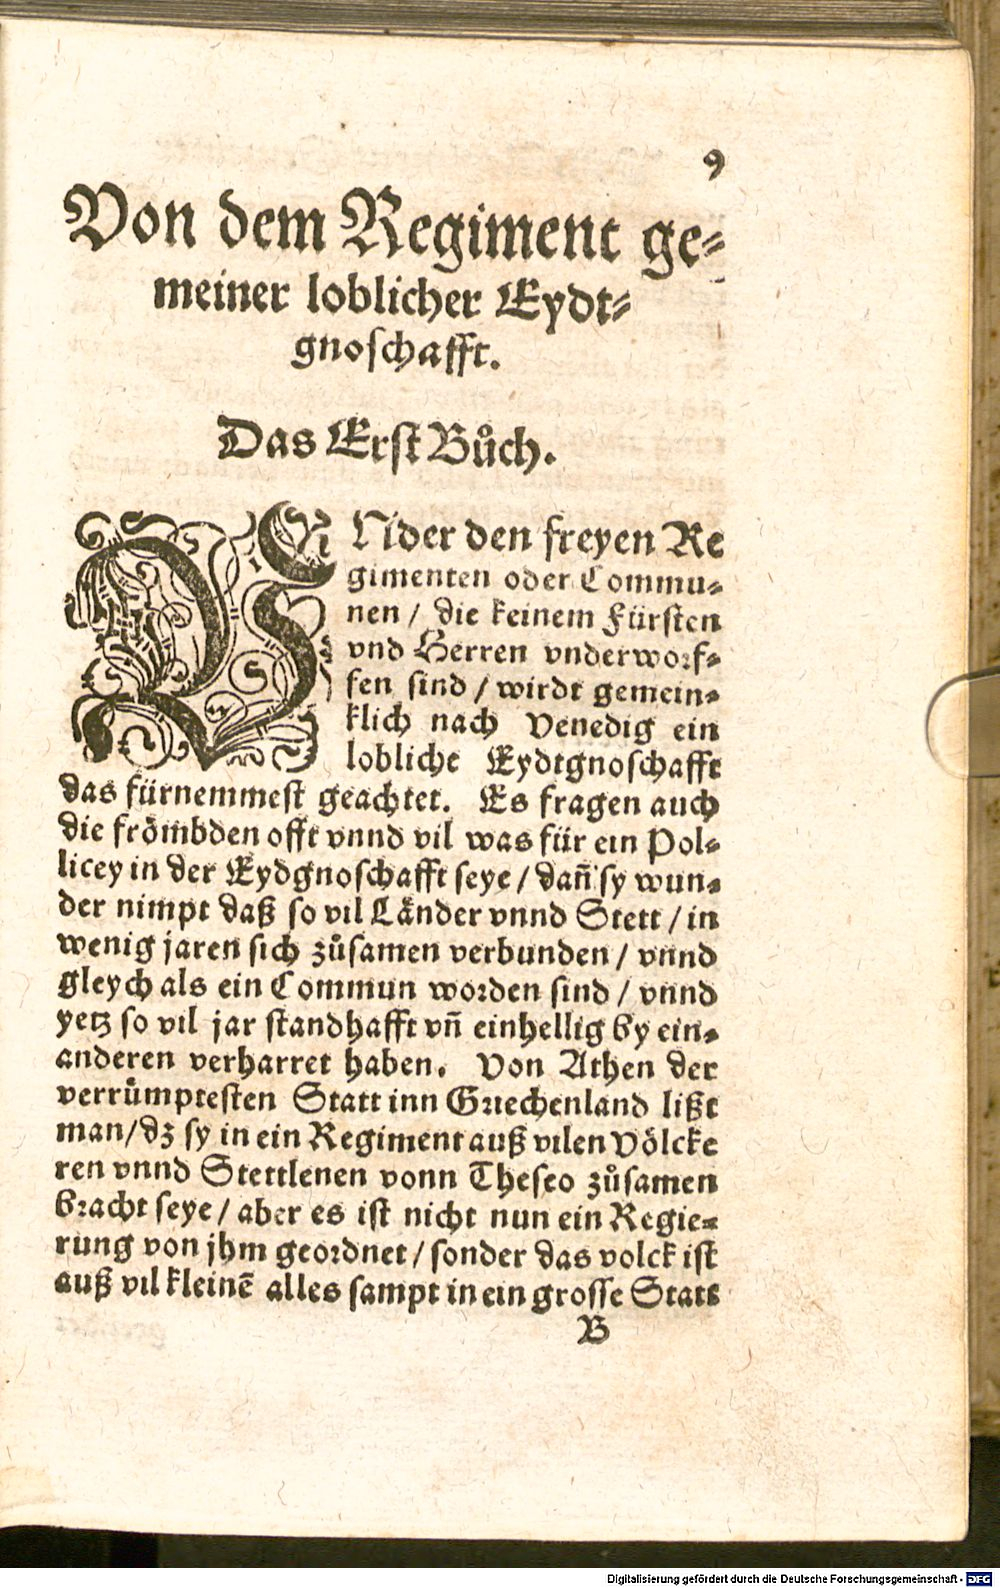 9
Von dem Regiment ge⸗
meiner loblicher Eydt⸗
gnoſchafft.
Das Erſt Bůch.
VNder den freyen Re
gimenten oder Commu⸗
nen / die keinem Fürſten
vnd Herren vnderworf⸗
fen ſind / wirdt gemein⸗
klich nach Venedig ein
lobliche Eydtgnoſchafft
das fürnemmeſt geachtet. Es fragen auch
die frömbden offt vnnd vil was für ein Pol⸗
licey in der Eydgnoſchafft ſeye / dañ ſy wun⸗
der nimpt daß ſo vil Länder vnnd Stett / in
wenig jaren ſich zůſamen verbunden / vnnd
gleych als ein Commun worden ſind / vnnd
yetz ſo vil jar ſtandhafft vñ einhellig by ein⸗
anderen verharret haben. Von Athen der
verrůmpteſten Statt inn Griechenland lißt
man / dz ſy in ein Regiment auß vilen Völcke
ren vnnd Stettlenen vonn Theſeo zůſamen
bracht ſeye / aber es iſt nicht nun ein Regie⸗
rung von jhm geordnet / ſonder das volck iſt
auß vil kleinē alles ſampt in ein groſſe Statt
B
Digitalisierung gefördert durch die Deutsche Forschungsgemeinschaft - DFG